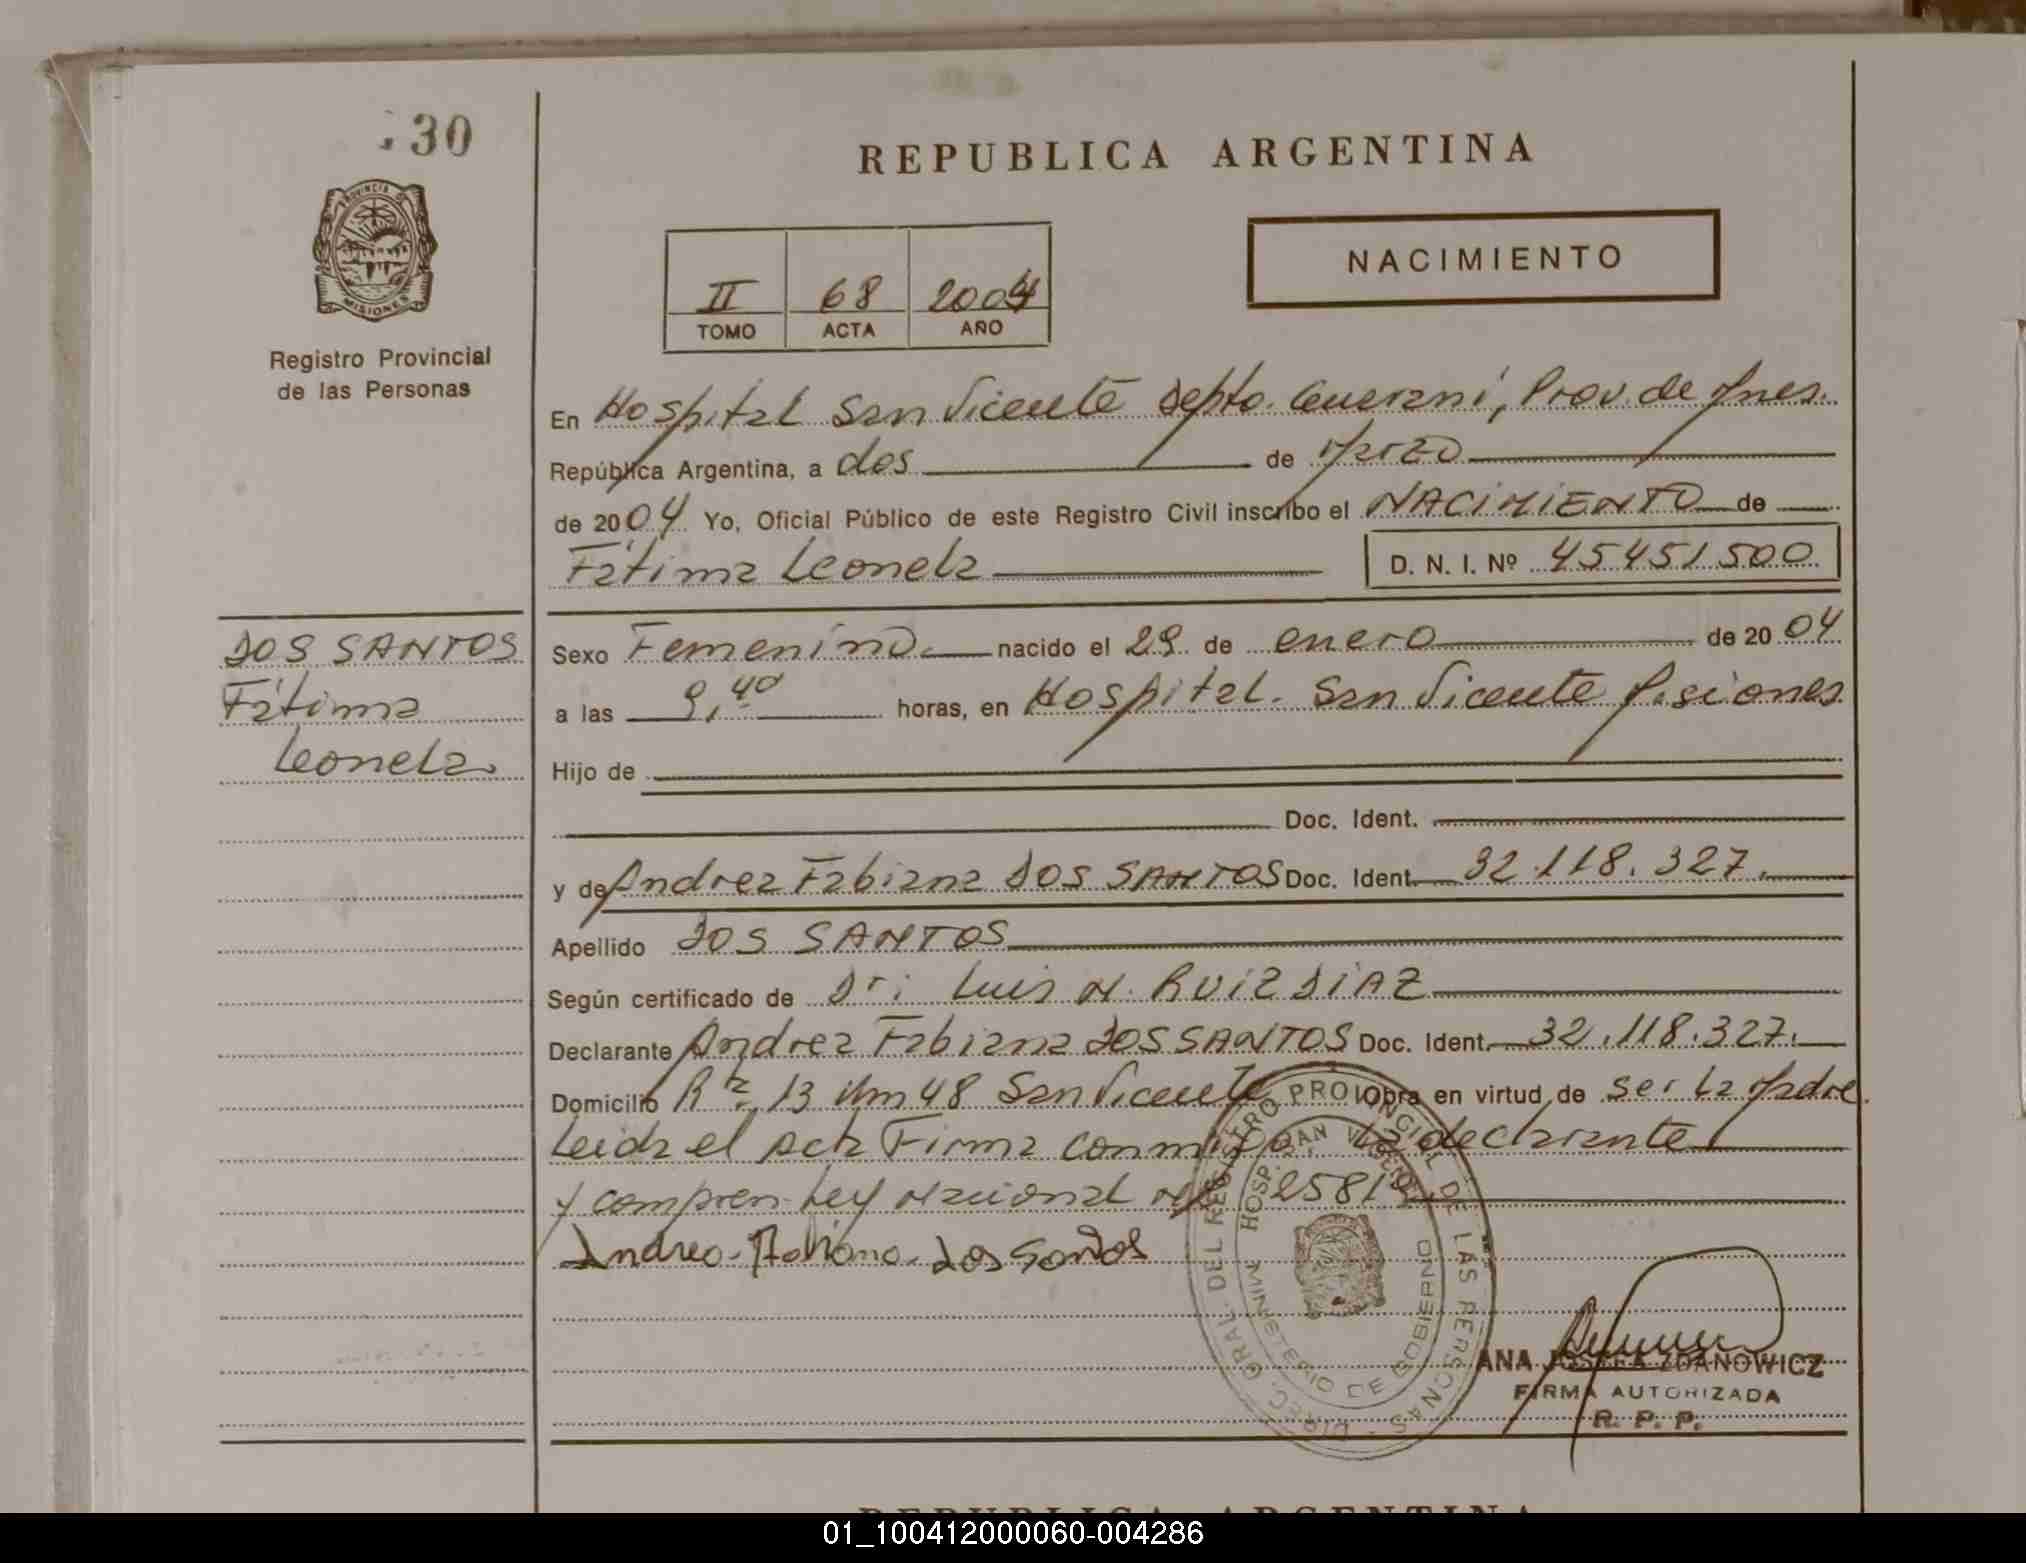 30
REPUBLICA ARGENTINA
PROVINCIA DE
MISIONES
Registro Provincial
de las Personas
II 68 2004
TOMO ACTA AÑO
NACIMIENTO
En Hospital San Vicente Depto. Guarani, Prov. de Mnes.
República Argentina, a dos de Marzo
de 2004 Yo, Oficial Público de este Registro Civil inscribo el NACIMIENTO de
Fátima Leonela D. N. I. Nº 45451500
DOS SANTOS
Fátima
Leonela
Sexo Femenino nacido el 29 de enero de 2004
a las 9,40 horas, en Hospital San Vicente Misiones
Hijo de
Doc. Ident.
y de Andrea Fabiana DOS SANTOS Doc. Ident. 32.118.327.
Apellido DOS SANTOS
Según certificado de Dr: Luis N. RUIZ DIAZ
Declarante Andrea Fabiana DOS SANTOS Doc. Ident. 32.118.327.
Domicilio Rta. 13 Km 48 San Vicente Obra en virtud de ser la Madre
Leida el Acta Firma conmigo la declarante
y compren. Ley Nacional Nº 25819
Andrea Fabiana dos Santos
DIREC. GRAL. DEL REGISTRO PROVINCIAL DE LAS PERSONAS
HOSP. SAN VICENTE
MINISTERIO DE GOBIERNO
ANA JOSEFA ZDANOWICZ
FIRMA AUTORIZADA
R. P. P.
REPUBLICA ARGENTINA
01_100412000060-004286